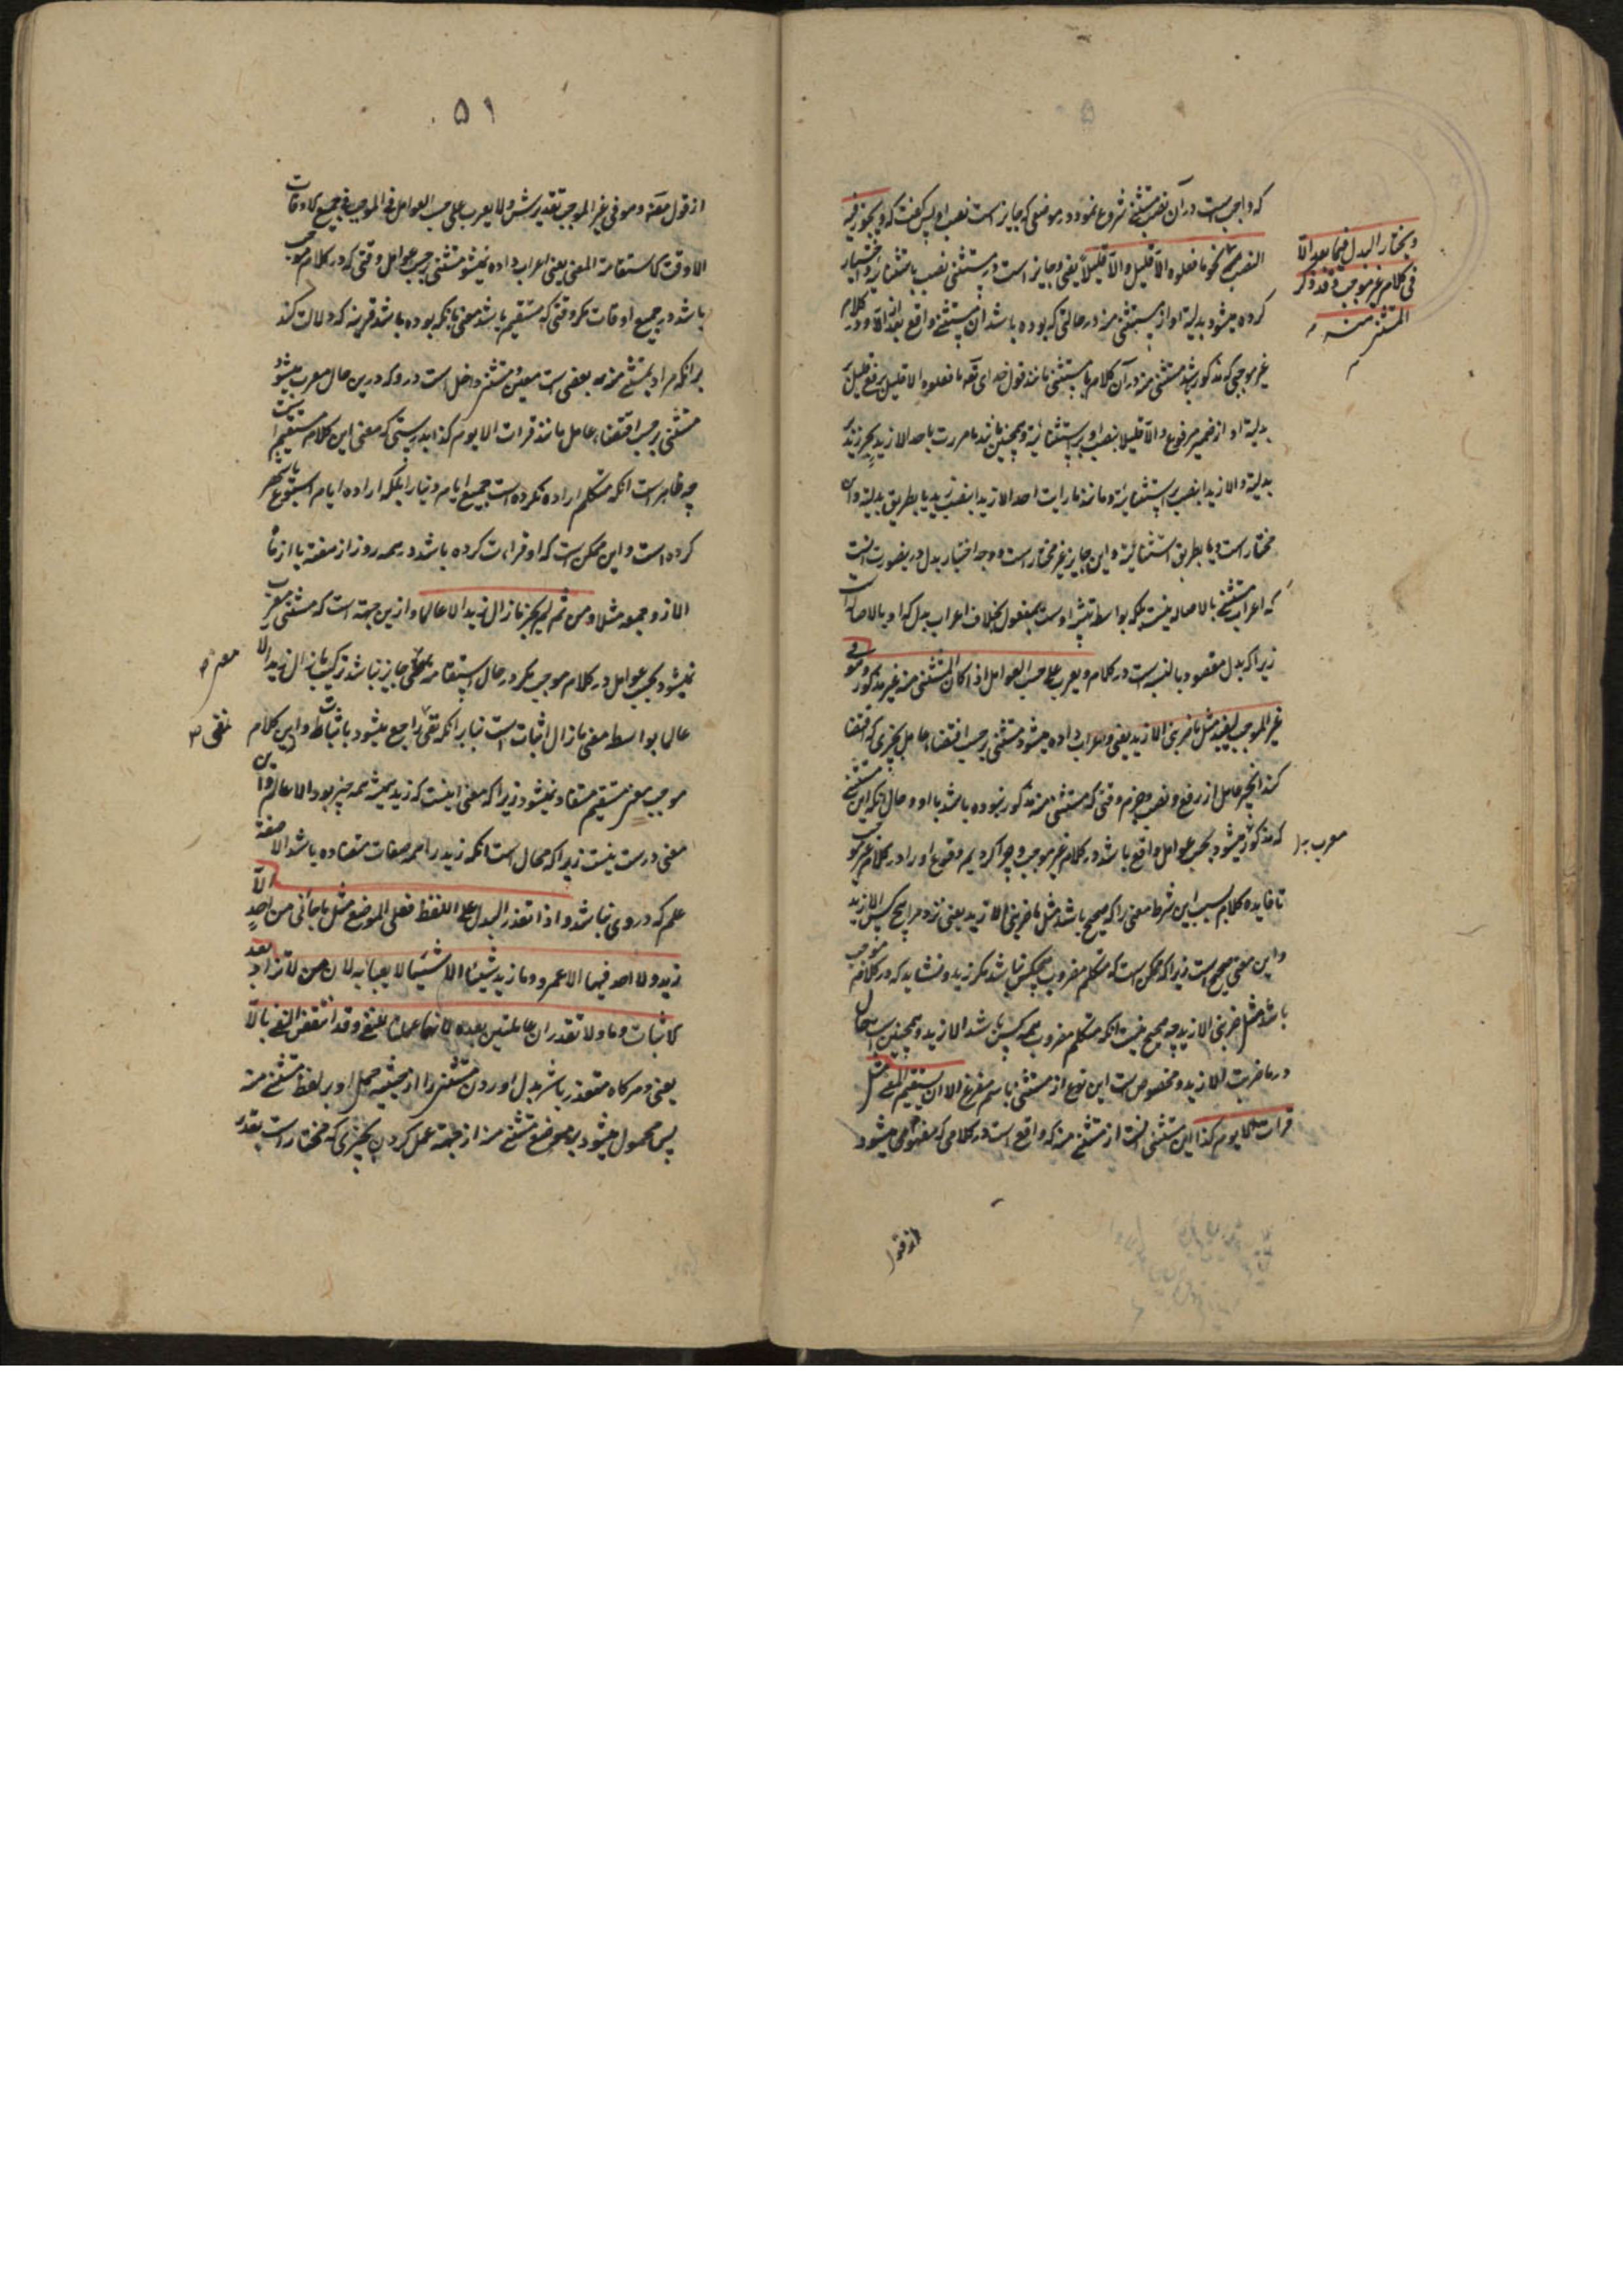 که واجب است در آن نصب مستثنی شروع نمود در موضعی که جایز است نصب او پس گفت که و یجوز فیه
النصب نحو ما فعلوه الا قلیل و الا قلیلا یعنی و جایز است در مستثنی نصب باستثنائیه و اختیار
کرده میشود بدلیة او از مستثنی منه در حالتی که بوده باشد آن مستثنی واقع بعد از الا و در کلام
غیر موجبی که مذکور شد مستثنی منه در آن کلام با مستثنی مانند قول خدای تعالی ما فعلوه الا قلیل برفع قلیل بر
بدلیة او از ضمیر مرفوع و الا قلیلا بنصب او بر استثنائیة و همچنین مانند ما مررت باحد الا زید بجر زید بر
بدلیة و الا زیدا بنصب بر استثنائیة و مانند ما رایت احدا الا زیدا بنصب زید یا بطریق بدلیة و آن
مختار است و یا بطریق استثنائیة و این جایز غیر مختار است و وجه اختیار بدل در نصورت انست
که اعراب مستثنی بالاصاله نیست بلکه بواسطه تشبیه اوست بمفعول بخلاف اعراب بدل که او بالاصاله است
زیرا که بدل مقصود بالنسبه است در کلام و یعرب علی حسب العوامل اذا کان المستثنی منه غیر مذکور و هو فی
غیر الموجب لیفید مثل ما ضربنی الا زید یعنی و اعراب داده میشود مستثنی بر حسب اقتضاء عامل بچیزی که اقتضا
کند آنچیز عامل از رفع و نصب و جزم وقتی که مستثنی منه مذکور نبوده باشد با او و حال آنکه این مستثنی
که مذکور میشود بحسب عوامل واقع باشد در کلام غیر موجب و چرا کردیم وقوع او را در کلام غیر موجب
تا فایده کلام بسبب این شرط معنی را که صحیح باشد مثل ما ضربنی الا زید یعنی نزد مرا هیچ کس الا زید
و این معنی صحیح است زیرا که ممکن است که متکلم مضروب هیچکس نباشد مگر زید و نشاید که در کلام موجب
باشد مثل ضربنی الا زید چه صحیح نیست آنکه متکلم مضروب همه کس باشد الا زید و همچنین است حال
در ما ضربت الا زید و مخصوص است این نوع از مستثنی باسم مفرغ الا ان یستقیم المعنی مثل
قرات الا یوم کذا این مستثنی است از مستثنی منه که واقع است در کلامی که مفهوم میشود
و یختار البدل فیما بعد الا
فی کلام غیر موجب و قد ذکر
المستثنی منه
معرب
از قول
٥١
از قول مصنه و هو فی غیر الموجب تقدیرش و لا یعرب علی حسب العوامل فی الموجب فی جمیع الاوقات
الا وقت استقامة المعنی یعنی اعراب داده نمیشود مستثنی بر حسب عوامل وقتی که در کلام موجب
باشد در جمیع اوقات مگر وقتی که مستقیم باشد معنی بانکه بوده باشد قرینه که دلالت کند
بر انکه مراد بمستثنی منه بعضی است معین مستثنی داخل است در و که درین حال معرب میشود
مستثنی بر حسب اقتضاء عامل مانند قرات الا یوم کذا بدرستی که معنی این کلام مستقیم است
چه ظاهر است انکه متکلم اراده نکرده است جمیع ایام دنیا را بلکه اراده ایام اسبوع یا شهر
کرده است و این ممکن است که او قراءت کرده باشد در همه روز از هفته یا از ماه
الا روز جمعه مثلا و من ثم لم یجز ما زال زید الا عالما و ازین جهة است که مستثنی معرب
نمیشود بحسب عوامل در کلام موجب مگر در حال استقامة معنی جایز نباشد ترکیب ما زال زید الا
عالما بواسطه معنی ما زال اثبات است بنابرانکه نفی راجع میشود باثبات و این کلام
موجب معنی مستقیم مستفاد نمیشود زیرا که معنی اینست که زید همیشه همه چیز بود الا عالم و این
معنی درست نیست زیرا که محال است انکه زید را همه صفات متضاده باشد الا صفة
علم که در وی نباشد و اذا تعذر البدل علی اللفظ فعلی الموضع مثل ما جائنی من احد الا
زید و لا احد فیها الا عمرو و ما زید شیئا الا شئ لا یعبأ به لان من لا تزاد بعد
الاثبات و ما و لا تقدران عاملتین بعده لانهما عملتا للنفی و قد انتقض النفی بالا
یعنی و هرگاه متعذر باشد بدل اوردن مستثنی را از حیثیه حمل او بر لفظ مستثنی منه
پس محمول میشود بر موضع مستثنی منه از جهة عمل کردن بچیزی که مختار است بقدر
معنی
نفی